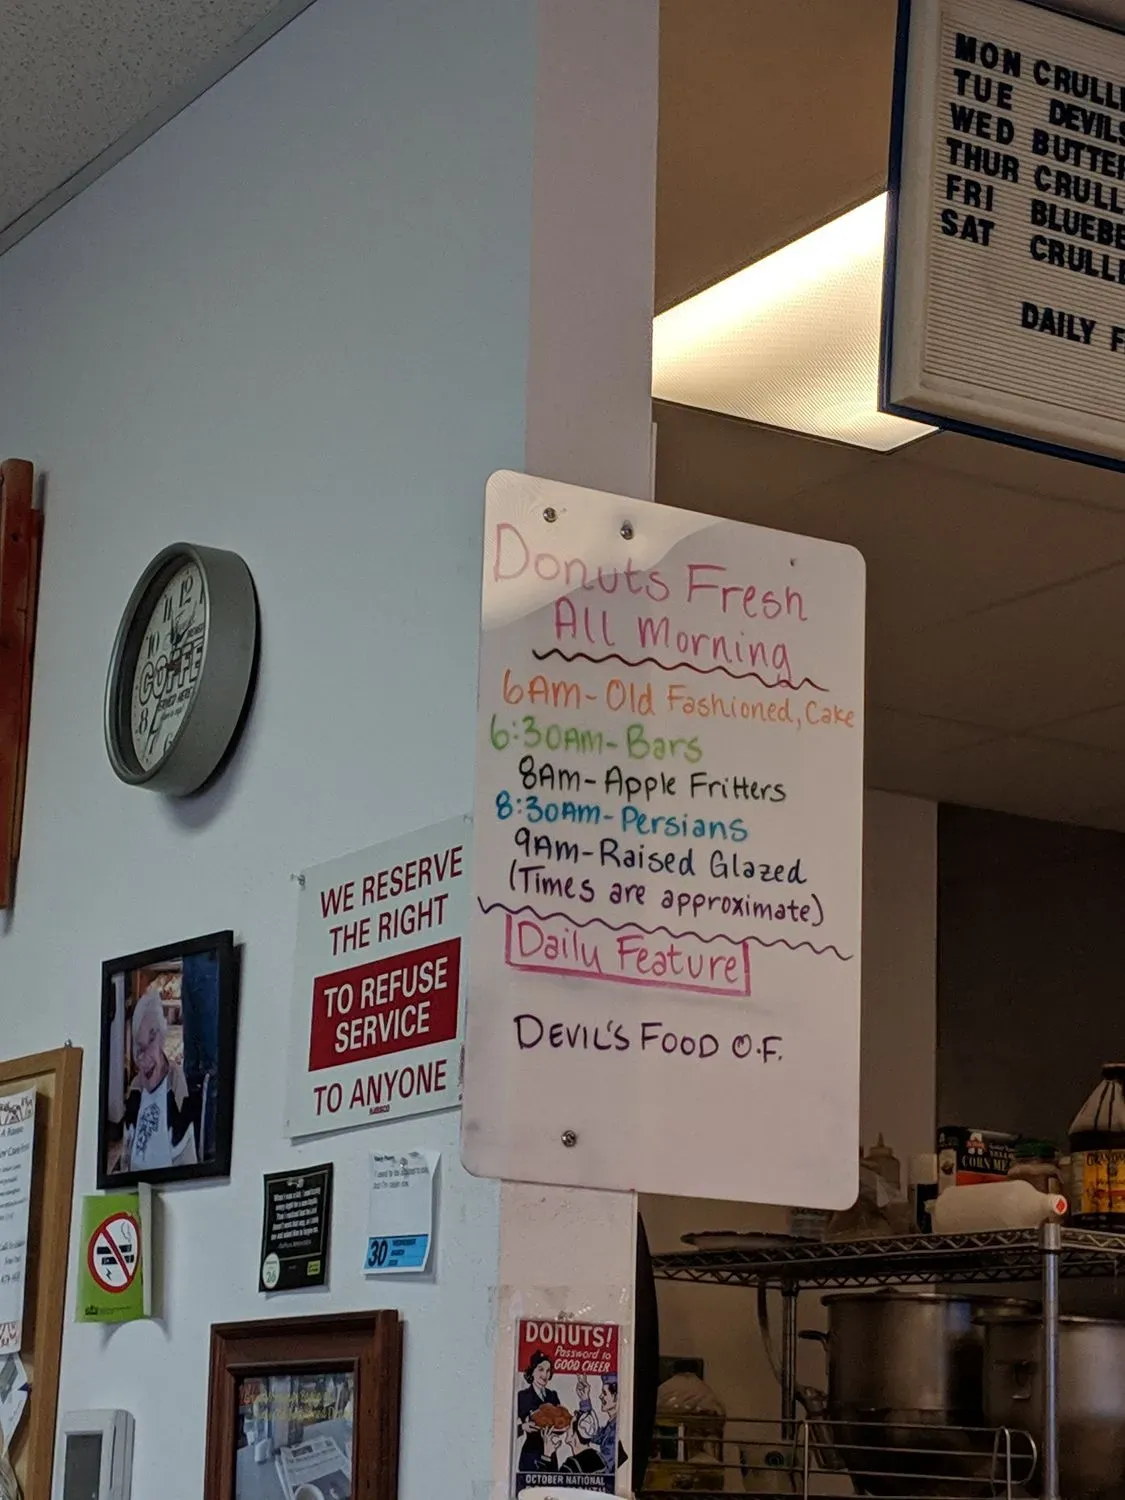 MON CRULL
TUE DEVILS
WED BUTTER
THUR CRULL
FRI BLUEBE
SAT CRULL
DAILY F
Donuts Fresh
All Morning
6AM-Old Fashioned, Cake
6:30AM-Bars
8AM-Apple Fritters
8:30AM-Persians
9AM-Raised Glazed
(Times are approximate)
Daily Feature
DEVIL'S FOOD O.F.
COFFEE
WE RESERVE
THE RIGHT
TO REFUSE
SERVICE
TO ANYONE
30
26
CORN ME
DONUTS!
Password to
GOOD CHEER
OCTOBER NATIONAL